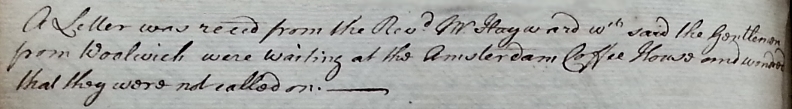 A Letter was recd from the Revd Mr Hayward wch said the Gentlemen
from Woolwich were waiting at the Amsterdam Coffee House and wondered
that they were not called on.